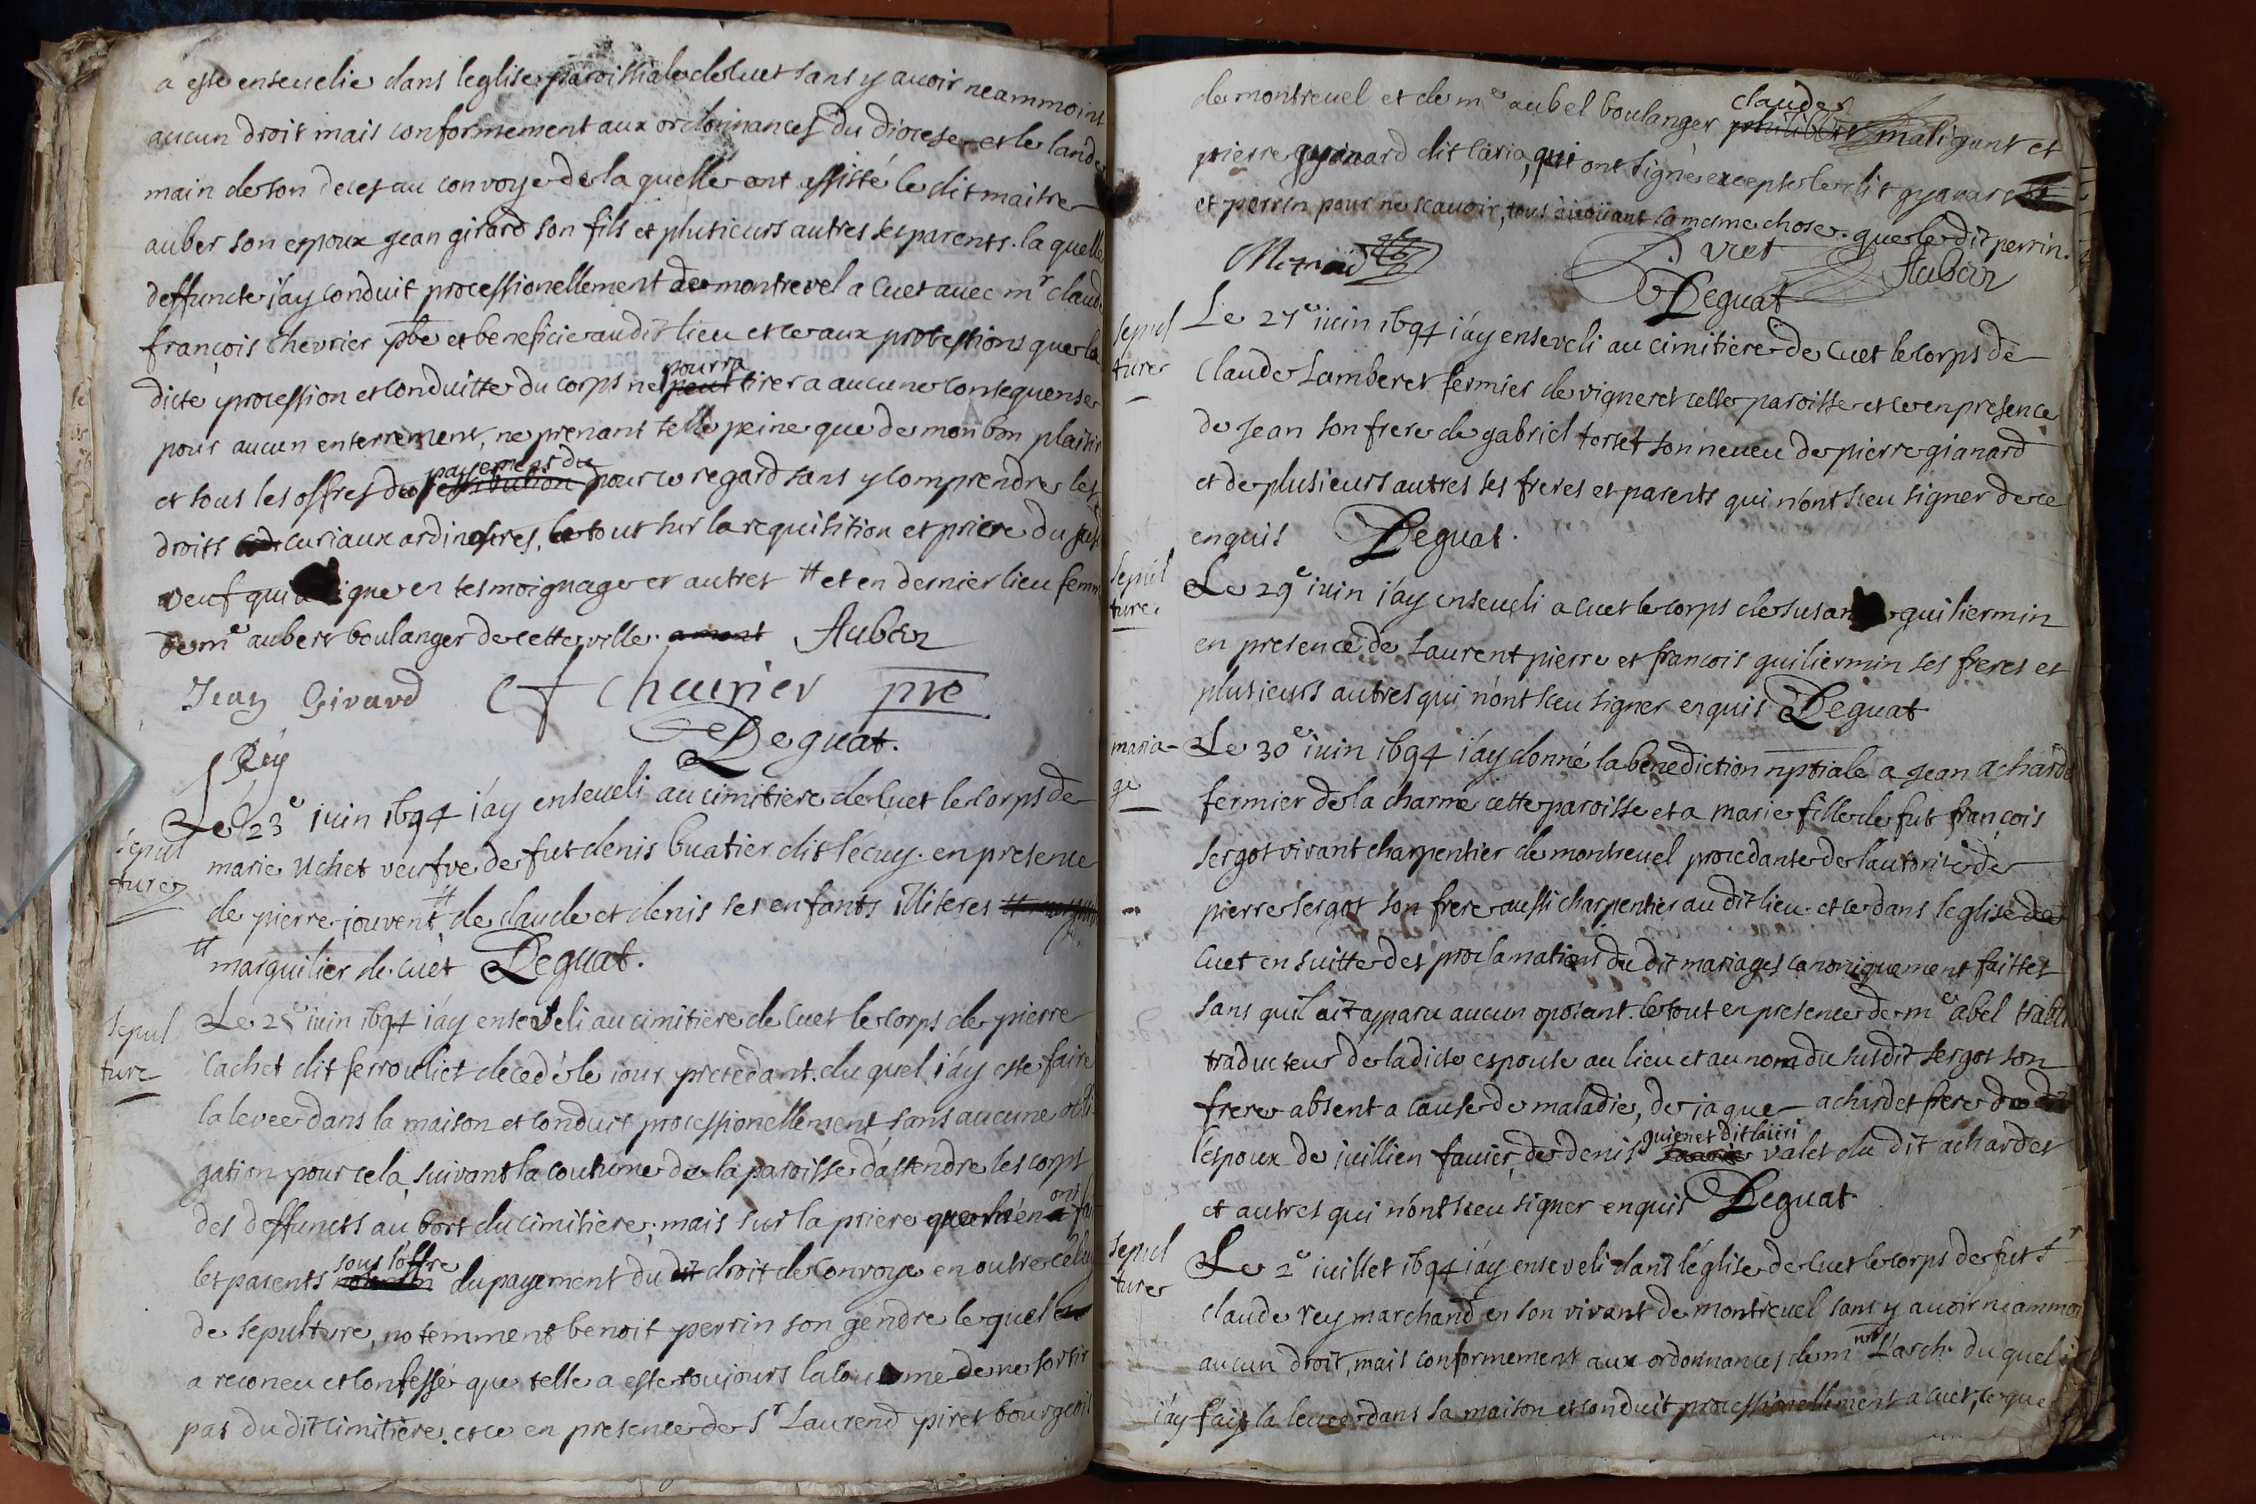 a este enseuelie dans leglise paroissiale de Cuet sans y auoir neammoint
aucun droit mais conformement aux ordonnances du diocese et le lande
main de son deces au convoye de la quelle ont assisté le dit maitre
auber son espoux jean girard son fils et plusieurs autres ses parents. la quelle
deffuncte i'ay conduit processionellement de montrevel a Cuet auec mr claude
françois chevrier pbre et beneficie audit lieu et ce aux protestions que la
pourra
dicte procession et conduitte du corps ne peut tirer a aucune consequense
pour aucun enterrement, ne prenant telle peine que de mon bon plaisir
payement du
et sous les offres de retribution pour ce regard sans y comprendre les
droits curiaux ordinaires, le tout sur la requisition et priere du susd
veuf qui a signe en tesmoignage et autres # et en dernier lieu femme
de me aubert boulanger de cette ville. Auber
Jean Girard C f Cheurier pre
Deguat.
Rey
sepul
ture
Le 23e iuin 1694 i'ay enseueli au cimitiere de Cuet le corps de
marie uchet veufve de fut denis buatier dit lécuy. en presence
de pierre jouvent # de claude et denis ses enfants illiteres
# marguilier de cuet Deguat.
sepul
ture
Le 25e iuin 1694 i'ay enseveli au cimitiere de Cuet le corps de pierre
Cachet dit ferrouliet decedé le iour precedant. du quel i'ay este faire
la levee dans la maison et conduit processionellement sans aucune obli
gation pour cela, suivant la coutume de la paroisse d'attendre les corps
ont
des deffuncts au bort du cimitière; mais sur la priere que m'en a fait
sous l'offre
les parents du payement du dit droit de Convoye en outre celuy
de sepulture, notemment benoit perrin son gendre le quel
a reconeu et confessé que telle a este toujours la coutume de ne sortir
pas du dit cimitière. et ce en presence de Sr Laurend piret bourgeois
de montreuel et de me aubel boulanger claude philibert maligant et
pierre gyanard dit Caria, qui ont signé excepté le dit gyanard
et perrin pour ne scauoir, tous auoüant la mesme chose. que le dit perrin.
viret
Aubar
Deguat
sepul
ture
Le 27e iuin 1694 i'ay enseveli au cimitiere de Cuet le corps de
Claude Lamberet fermier de vigneret cette paroisse et ce en presence
de jean son frere de gabriel torset son neueu de pierre gianard
et de plusieurs autres ses freres et parents qui n'ont sceu signer de ce
enquis Deguat.
sepul
ture
Le 29e iuin i'ay enseueli a cuet le corps de susanne guiliermin
en presence de Laurent pierre et francois guiliermin ses freres et
plusieurs autres qui n'ont sceu signer enquis Deguat
maria-
ge
Le 30e iuin 1694 i'ay donné la benediction nptiale a jean achardet
fermier de la charme cette paroisse et a marie fille de fut françois
sergot vivant charpentier de montreuel procedante de l'autorité de
pierre sergot son frere aussi charpentier au dit lieu. et ce dans leglise de
Cuet en suitte des proclamations du dit mariages canoniquement faittes
sans quil ait apparu aucun oposant. le tout en presence de me abel
traducteur de ladicte espouse au lieu et au nom du susdit sergot son
frere absent a cause de maladie, de jaque achardet frere du dit
guienet dit lauri
l'espoux de juillien fauier, de denis valet du dit achardet
et autres qui n'ont sceu signer enquis Deguat.
sepul
ture
Le 2e iuillet 1694 i'ay enseveli dans l'église de Cuet le corps de fut sr
claude rey marchand en son vivant de montreuel sans y auoir neammoi
aucun droit, mais conformement aux ordonnances de mr nre L'arch. du quel
i'ay fait la leuee dans sa maison et conduit processionellement a cuet, ce que